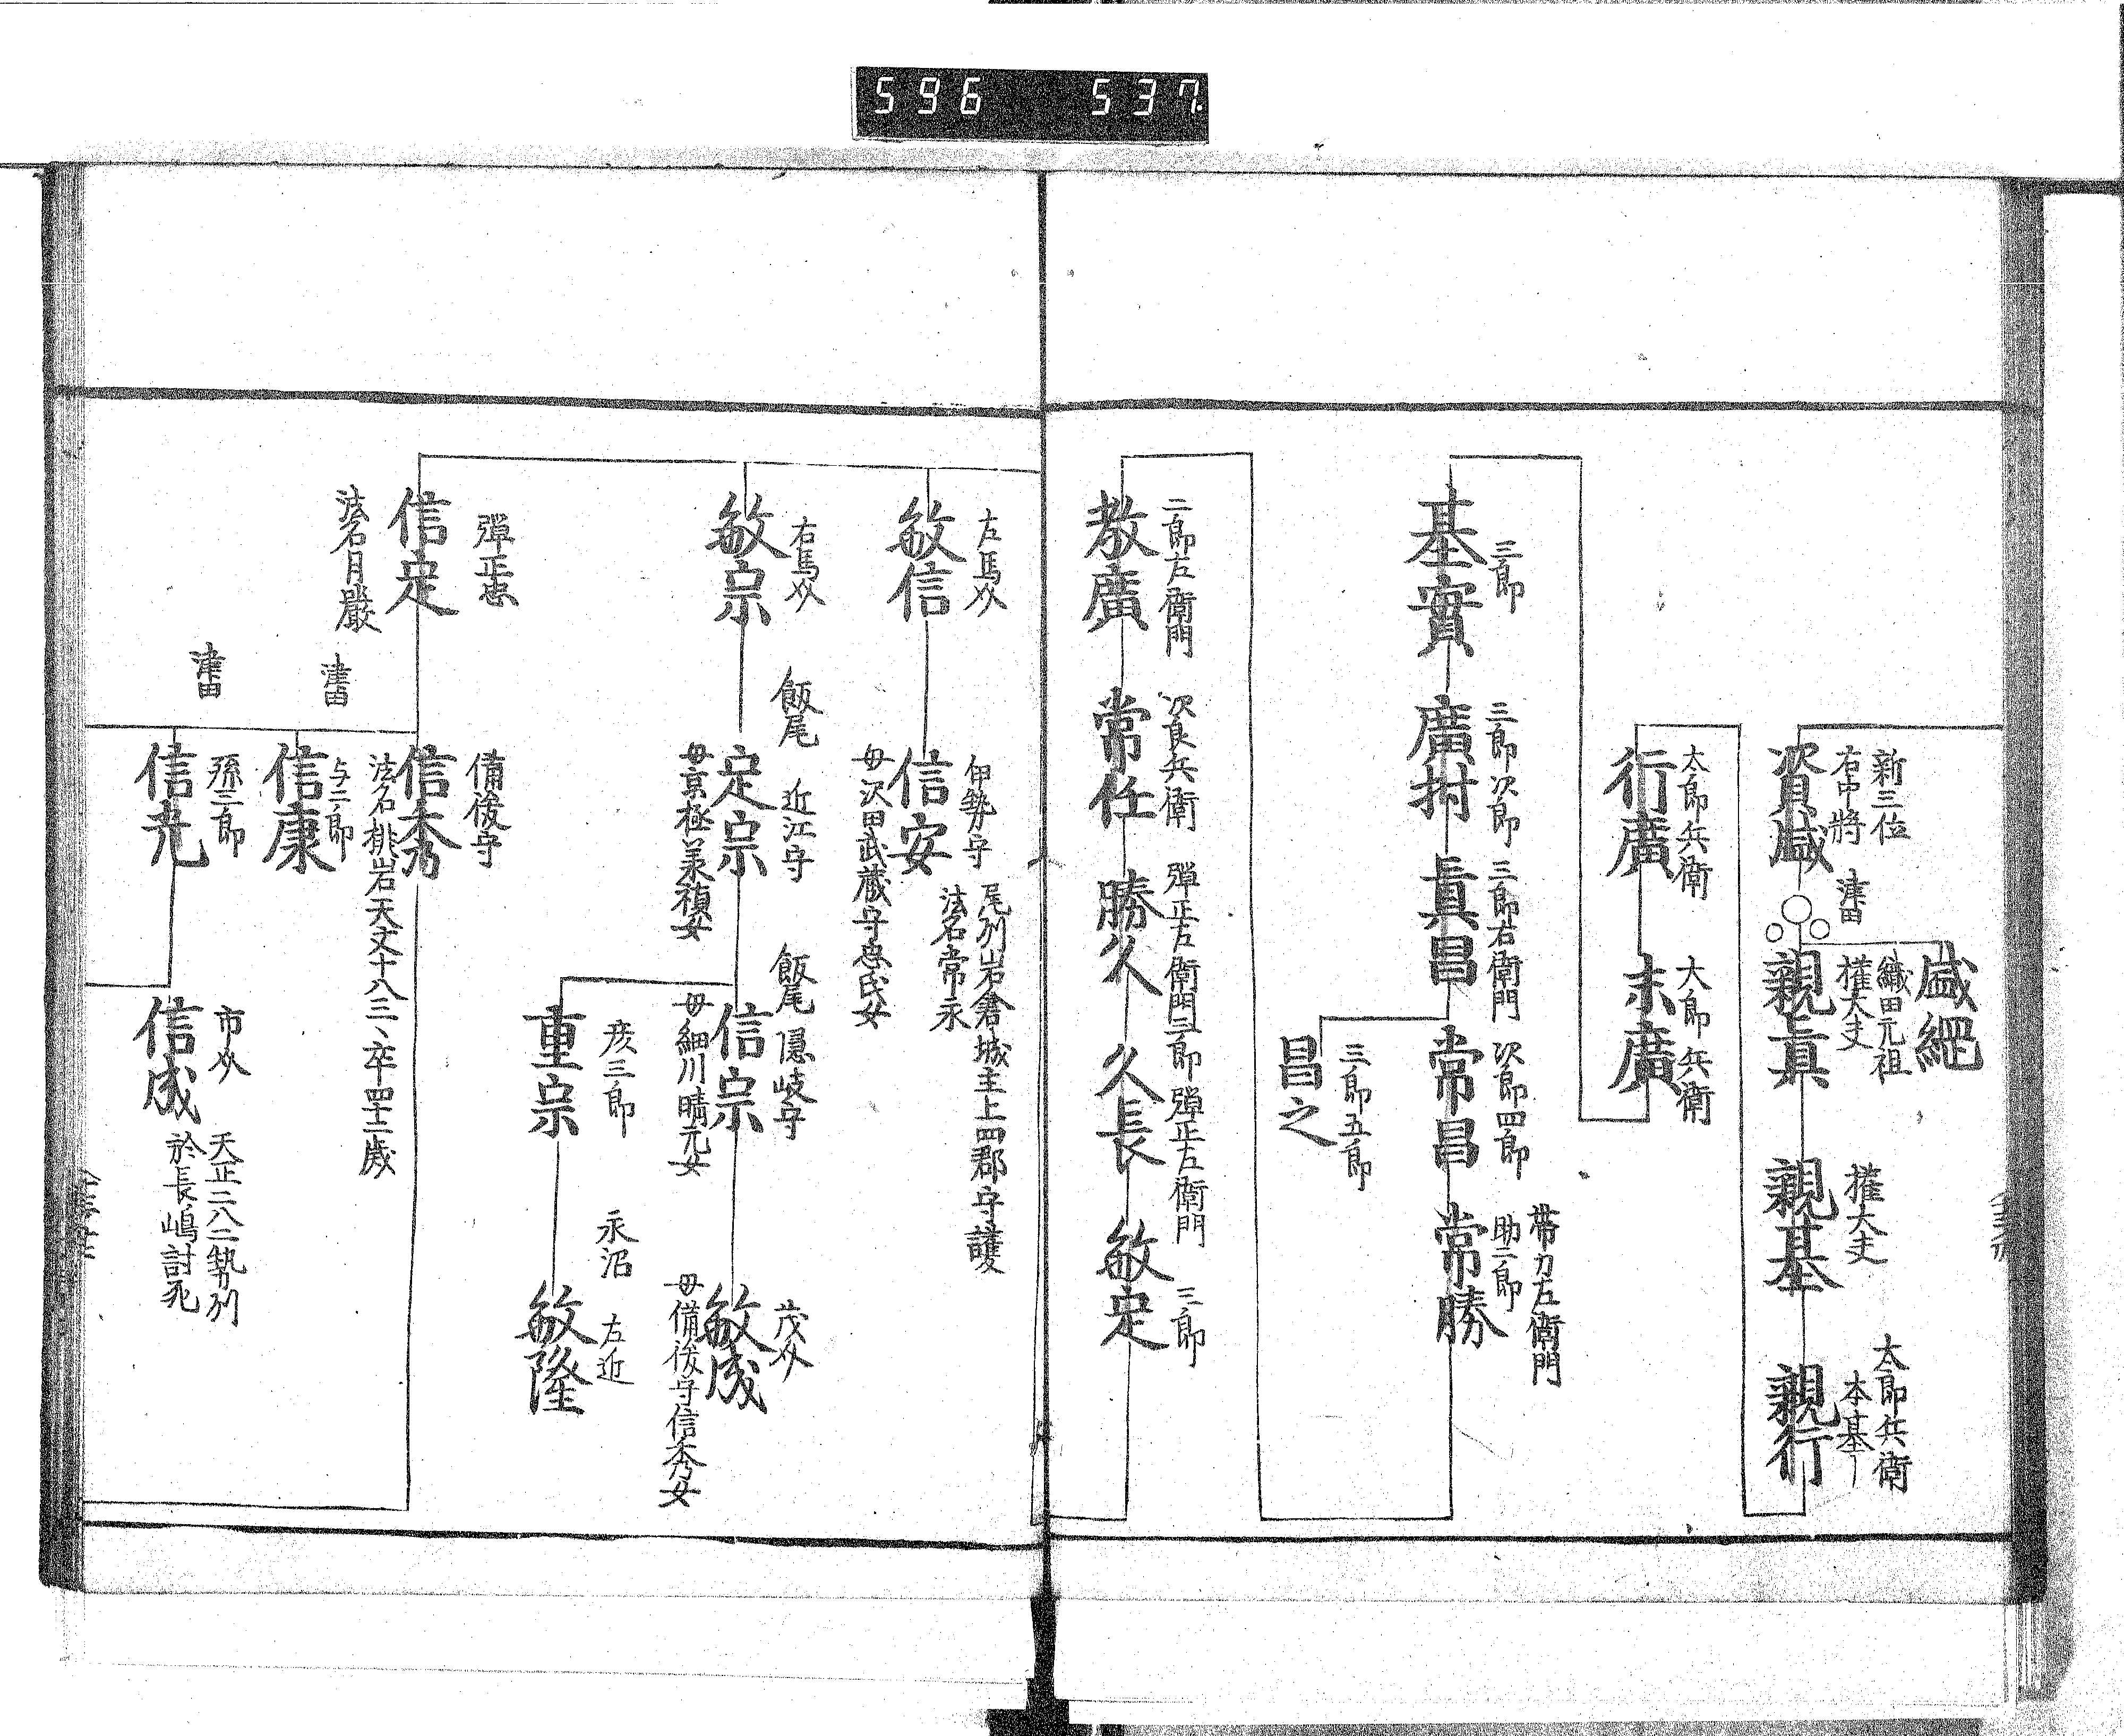 596 537
新三位
右中將
資盛
津田
盛綱
織田元祖
權大夫
親眞
權大夫
親基
太郎兵衛
本基一
親行
太郎兵衛
行廣
大郎兵衛
末廣
三郎
基實
三郎次郎
廣村
三郎右衛門
眞昌
次郎四郎
常昌
帯刀左衛門
助二郎
常勝
三郎五郎
昌之
二郎左衛門
教廣
次良兵衛
常任
弾正左衛門三郎
勝久
弾正左衛門
久長
三郎
敏定
左馬夊
敏信
伊勢守
信安
尾刕岩倉城主上四郡守護
法名常永
母次田武蔵守忠氏女
右馬夊
敏宗
飯尾
近江守
定宗
母京極美禎女
飯尾
隠岐守
信宗
母細川晴元女
茂夊
敏成
母備後守信秀女
彦三郎
重宗
永沼
左近
敏隆
彈正忠
信定
法名月巖
備後守
信秀
法名桃岩天文十八三、卒四十二歳
津田
与二郎
信康
津田
孫三郎
信光
市夊
信成
天正二八二勢刕
於長嶋討死